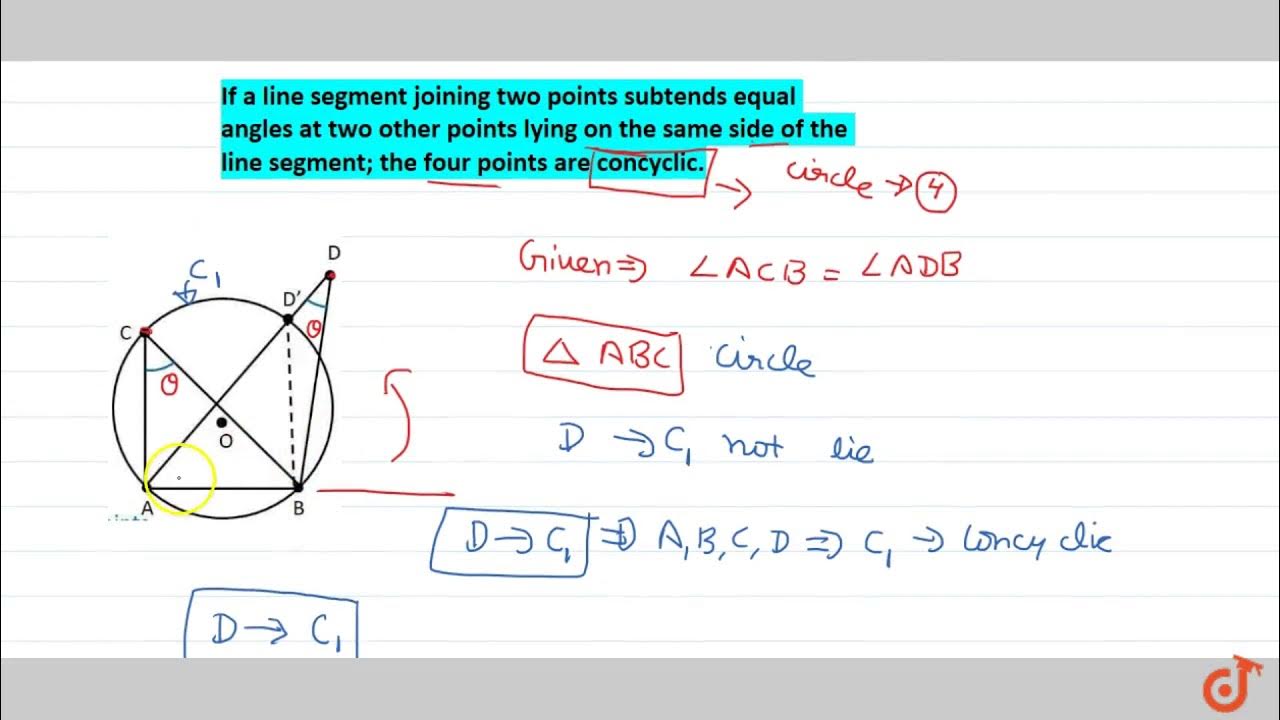 If a line segment joining two points subtends equal
angles at two other points lying on the same side of the
line segment; the four points are concyclic.
circle → 4
Given ⇒ ∠ACB = ∠ADB
C₁
D
D'
C
θ
θ
O
A
B
△ ABC circle
D → C₁ not lie
D → C₁ ⇒ A, B, C, D ⇒ C₁ → Concyclic
D → C₁